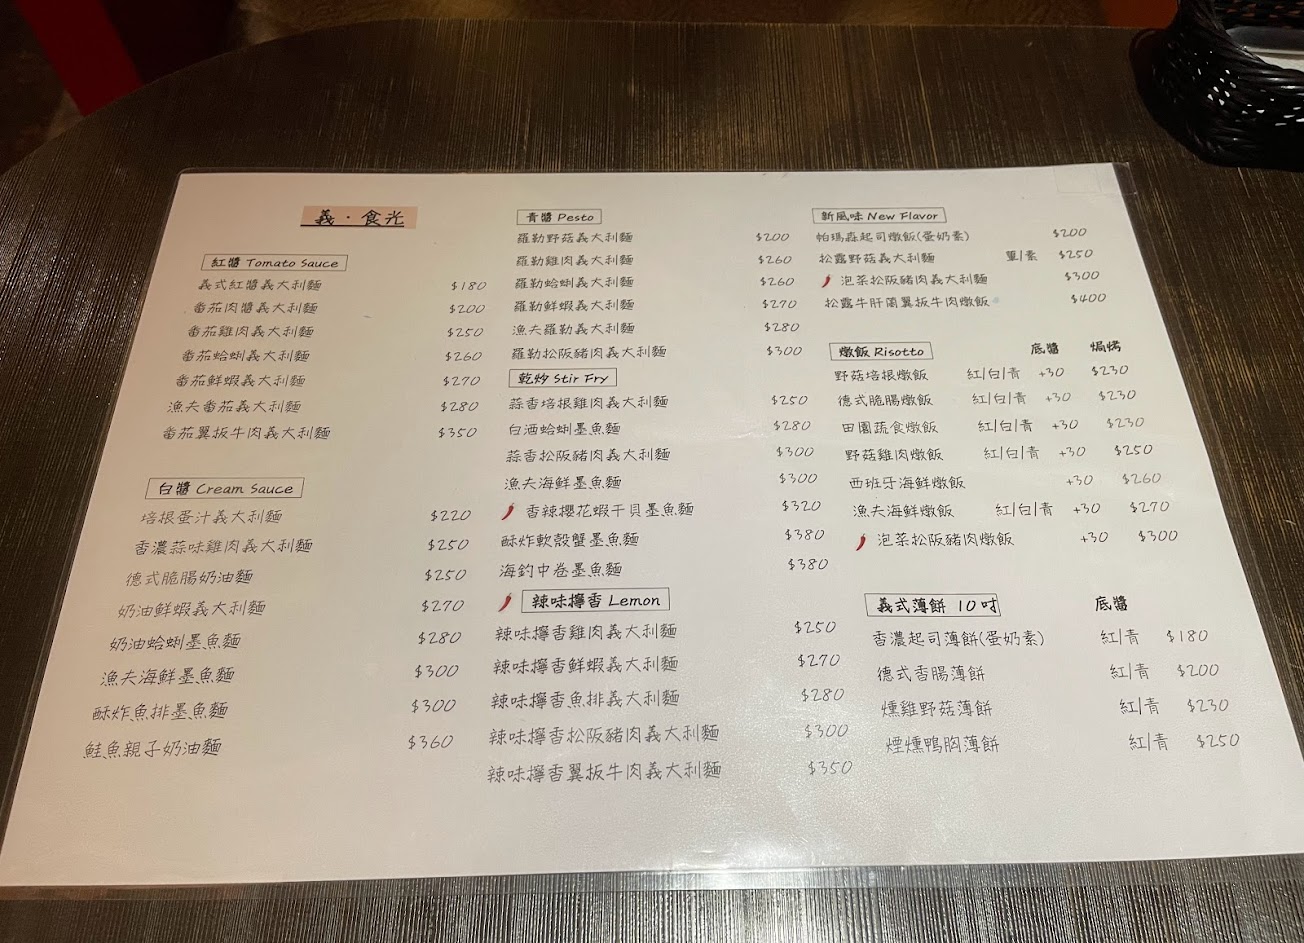 義·食光
紅醬 Tomato Sauce
義式紅醬義大利麵 $180
番茄肉醬義大利麵 $200
番茄雞肉義大利麵 $250
番茄蛤蜊義大利麵 $260
番茄鮮蝦義大利麵 $270
漁夫番茄義大利麵 $280
番茄翼板牛肉義大利麵 $350
白醬 Cream Sauce
培根蛋汁義大利麵 $220
香濃蒜味雞肉義大利麵 $250
德式脆腸奶油麵 $250
奶油鮮蝦義大利麵 $270
奶油蛤蜊墨魚麵 $280
漁夫海鮮墨魚麵 $300
酥炸魚排墨魚麵 $300
鮭魚親子奶油麵 $360
青醬 Pesto
羅勒野菇義大利麵 $200
羅勒雞肉義大利麵 $260
羅勒蛤蜊義大利麵 $260
羅勒鮮蝦義大利麵 $270
漁夫羅勒義大利麵 $280
羅勒松阪豬肉義大利麵 $300
乾炒 Stir Fry
蒜香培根雞肉義大利麵 $250
白酒蛤蜊墨魚麵 $280
蒜香松阪豬肉義大利麵 $300
漁夫海鮮墨魚麵 $300
香辣櫻花蝦干貝墨魚麵 $320
酥炸軟殼蟹墨魚麵 $380
海釣中卷墨魚麵 $380
辣味檸香 Lemon
辣味檸香雞肉義大利麵 $250
辣味檸香鮮蝦義大利麵 $270
辣味檸香魚排義大利麵 $280
辣味檸香松阪豬肉義大利麵 $300
辣味檸香翼板牛肉義大利麵 $350
新風味 New Flavor
帕瑪森起司燉飯(蛋奶素) $200
松露野菇義大利麵 葷/素 $250
泡菜松阪豬肉義大利麵 $300
松露牛肝菌翼板牛肉燉飯 $400
燉飯 Risotto 底醬 焗烤
野菇培根燉飯 紅/白/青 +30 $230
德式脆腸燉飯 紅/白/青 +30 $230
田園蔬食燉飯 紅/白/青 +30 $230
野菇雞肉燉飯 紅/白/青 +30 $250
西班牙海鮮燉飯 +30 $260
漁夫海鮮燉飯 紅/白/青 +30 $270
泡菜松阪豬肉燉飯 +30 $300
義式薄餅 10吋 底醬
香濃起司薄餅(蛋奶素) 紅/青 $180
德式香腸薄餅 紅/青 $200
燻雞野菇薄餅 紅/青 $230
煙燻鴨胸薄餅 紅/青 $250